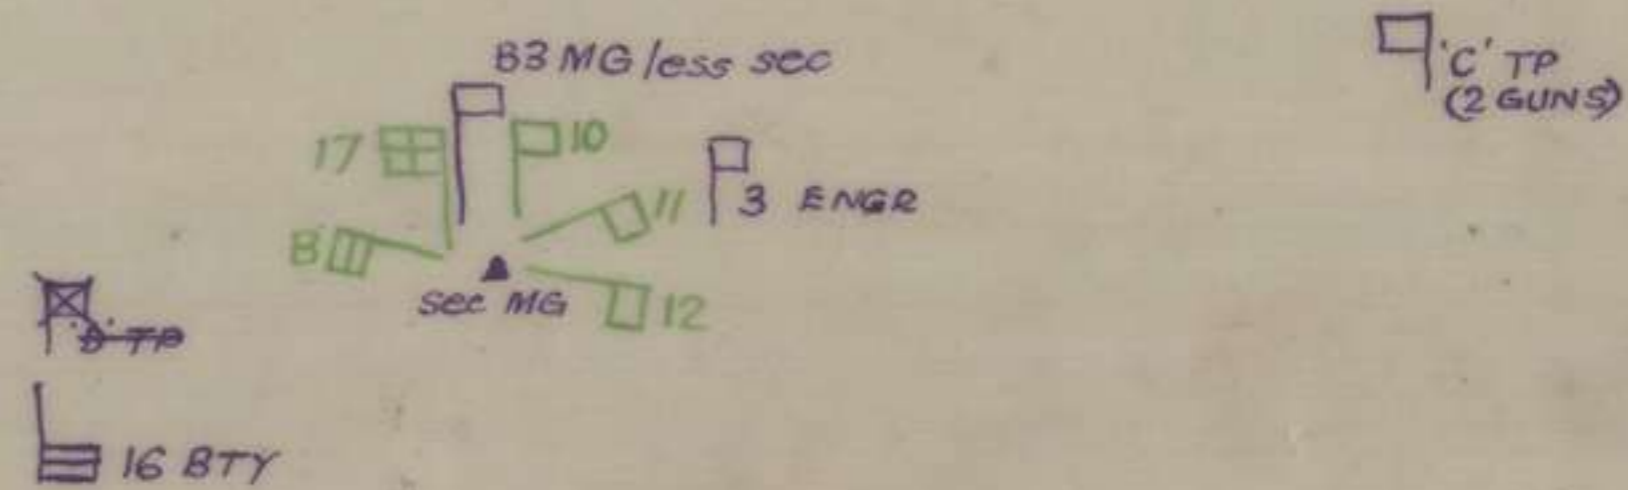 83 MG/less sec
'C' TP
(2 GUNS)
17
10
11
3 ENGR
8
sec MG
12
'D' TP
16 BTY